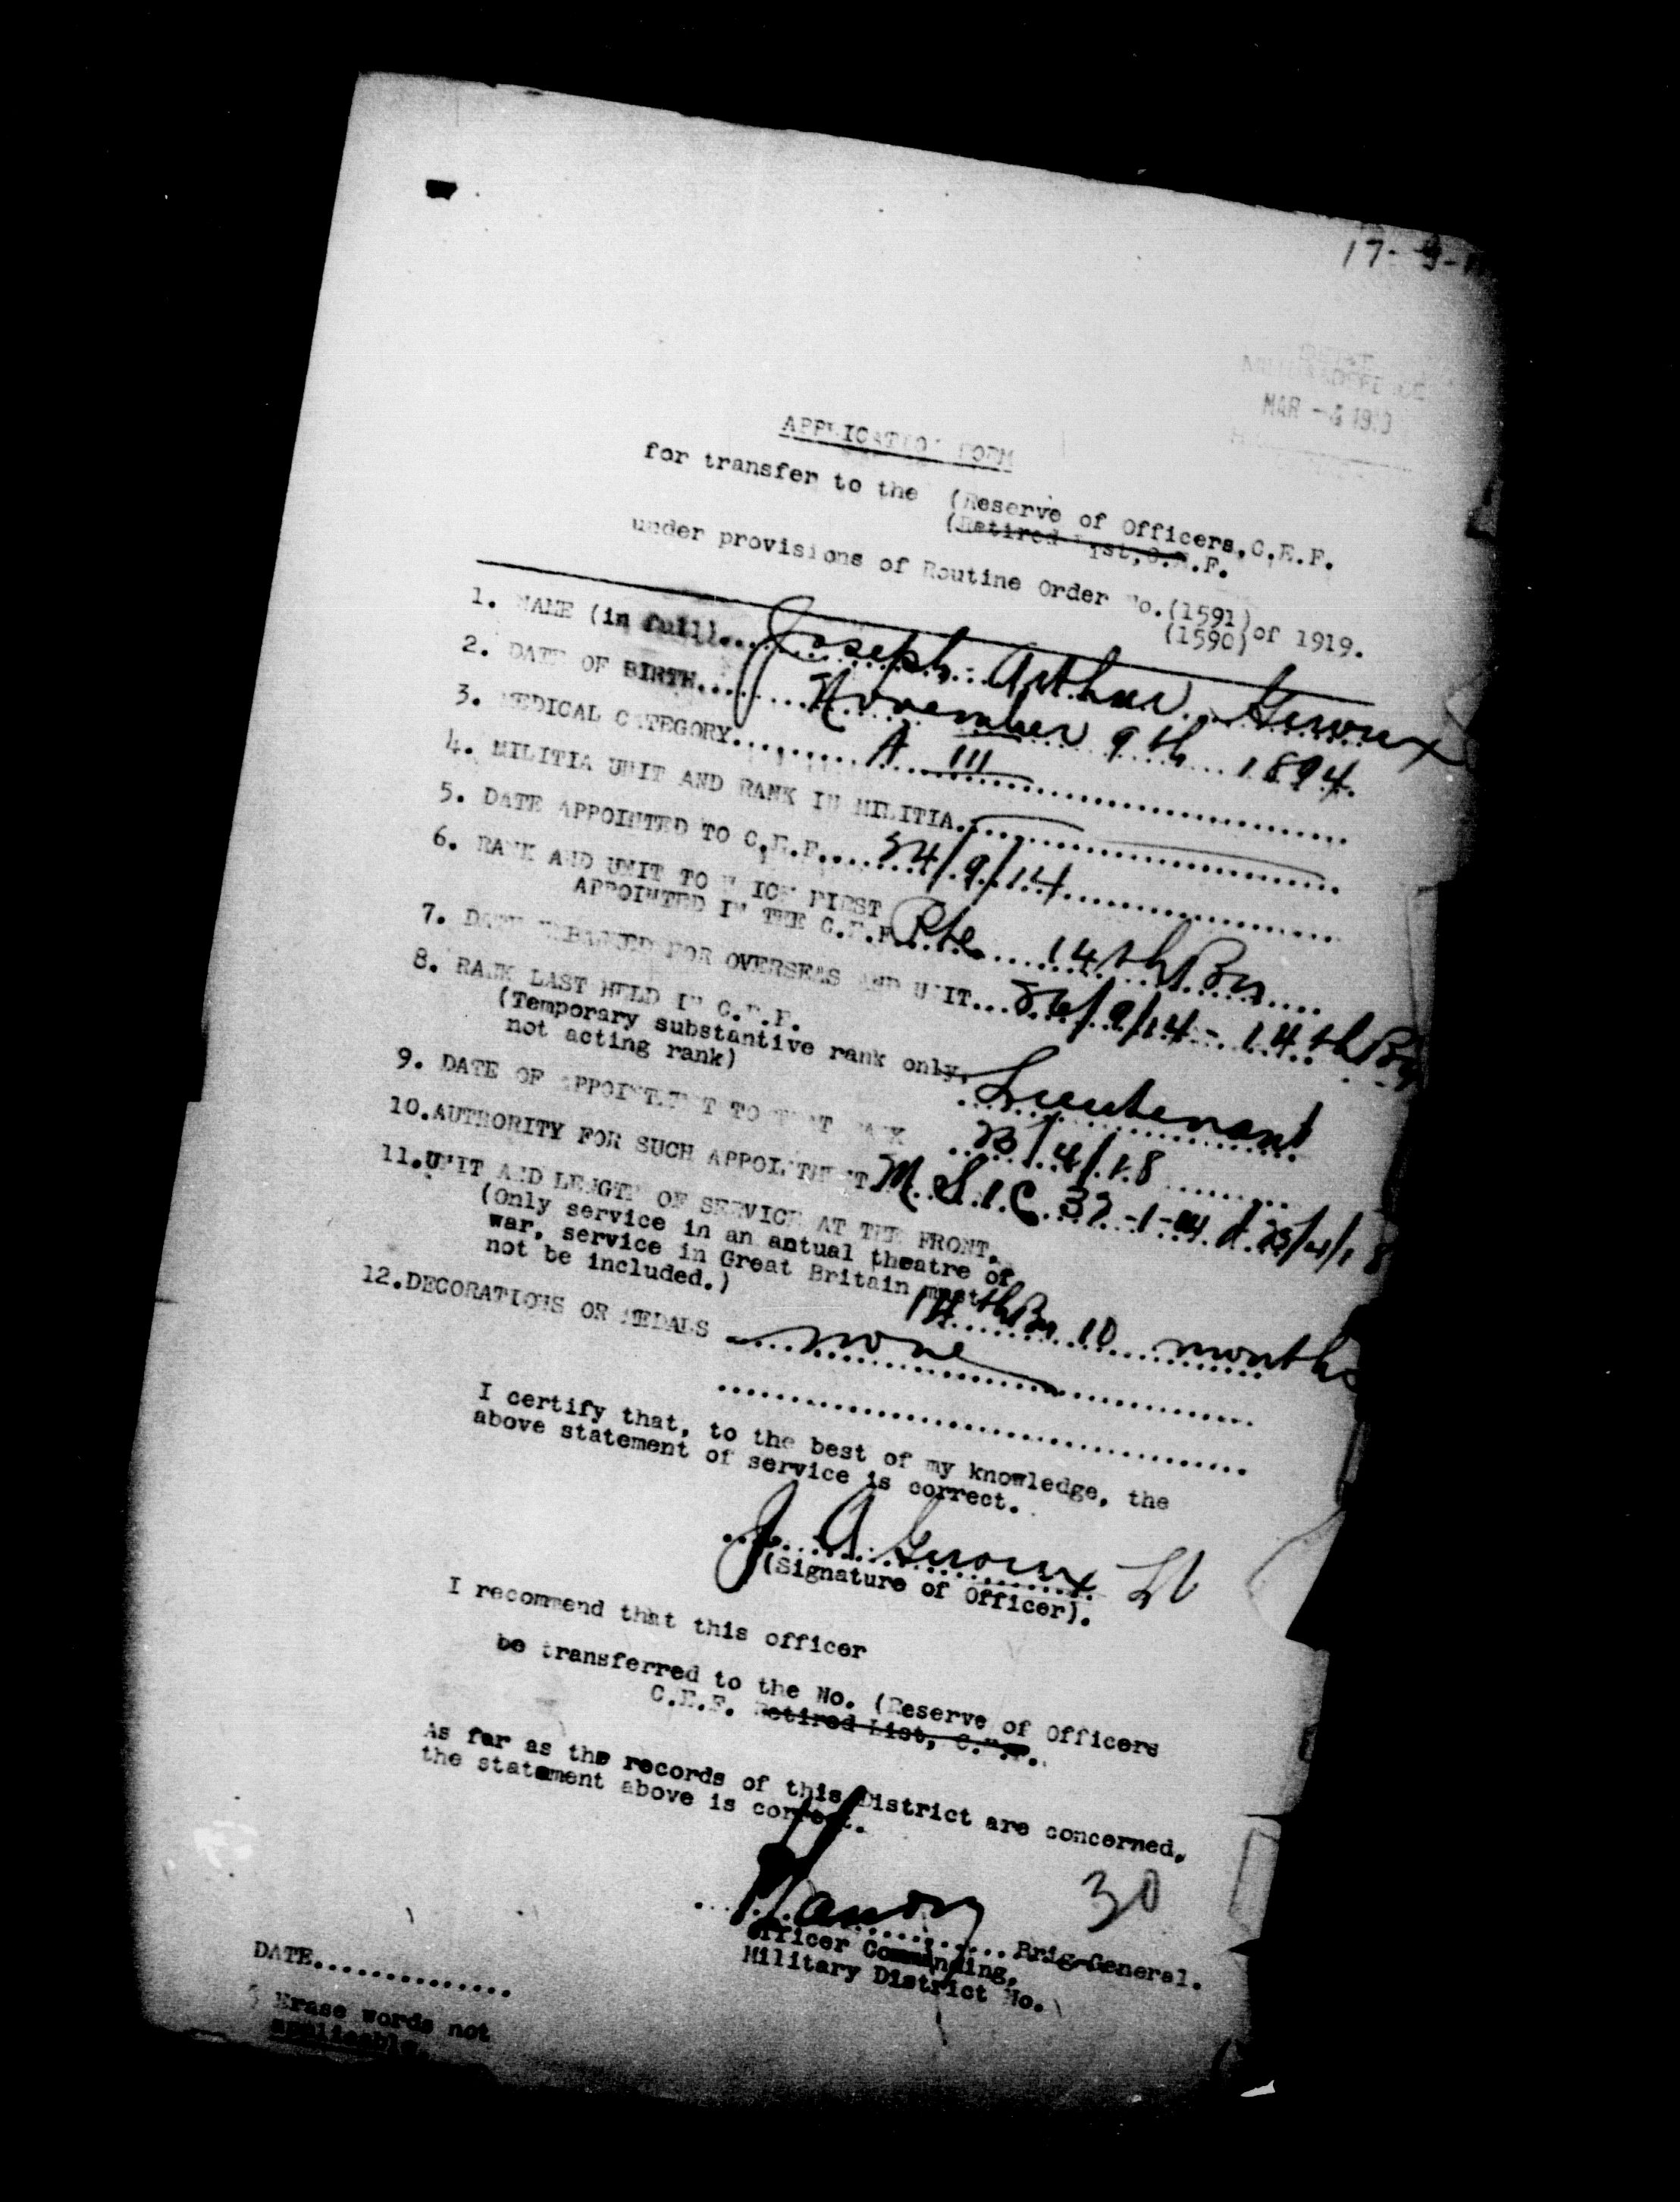 17-9-
MAR -4 19
APPLICATION FORM
for transfer to the (Reserve of Officers,C.E.F.
(Retired List,C.E.F.
under provisions of Routine Order No.(1591)of 1919.
(1590)
1. NAME (in full)...Joseph Arthur Giroux
2. DATE OF BIRTH...November 9th 1894.
3. MEDICAL CATEGORY...A III
4. MILITIA UNIT AND RANK IN MILITIA...
5. DATE APPOINTED TO C.E.F....24/9/14
6. RANK AND UNIT TO WHICH FIRST
APPOINTED IN THE C.E.F. Pte. 14th Bn
7. DATE EMBARKED FOR OVERSEAS AND UNIT...26/9/14 - 14th Bn
8. RANK LAST HELD IN C.E.F.
(Temporary substantive rank only,
not acting rank) Lieutenant
9. DATE OF APPOINTMENT TO THAT RANK 23/4/18
10.AUTHORITY FOR SUCH APPOINTMENT M.S.1.C. 37-1-44 d. 23/4/18
11.UNIT AND LENGTH OF SERVICE AT THE FRONT.
(Only service in an actual theatre of
war, service in Great Britain must
not be included.) 14th Bn 10 months
12.DECORATIONS OR MEDALS none
I certify that, to the best of my knowledge, the
above statement of service is correct.
J. A. Giroux Lt
(Signature of Officer).
I recommend that this officer
be transferred to the No. (Reserve of Officers
C.E.F. Retired List, C.E.F.
As far as the records of this District are concerned,
the statement above is correct.
30
Brig-General.
Officer Commanding,
Military District No.
DATE..............
Erase words not
applicable